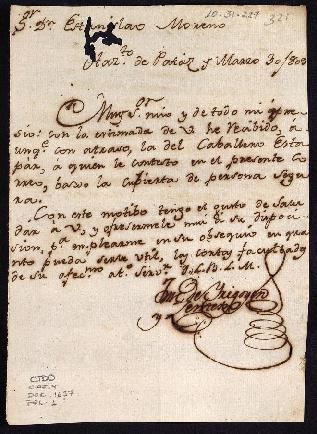 10-31-227 321
S. Dn. Estanislao Moreno
Naz.to de Patiz y Marzo 30/808
Muy S.or mio y de todo mi apre
sio: con la estimada de V. he recibido, a
unq.e con atraso, la del Caballero Esco
bar, á quien le contesto en el presente Co
rreo, bajo la cubierta de persona segu
ra.
Con este motibo tengo el gusto de salu
dar a V, y ofresermele mui á su dispoci
sion, p.a emplearme en su obsequio en qua
nto pueda serve util, los cortas facultades
de su afec.mo at.o Serv.or Q.B.S.M.
de Yrigoyen
y
CTDO
CAF.4
DOC. 1637
FOL. 1